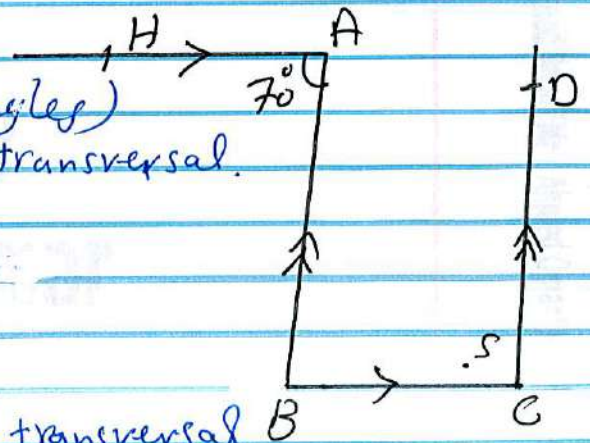 H A
70° D
gles)
transversal.
.S
B C
transversal